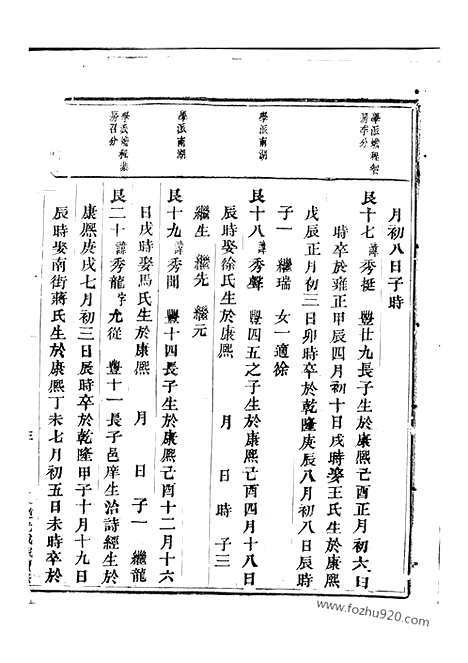 月初八日子時
學派
房孝分
良十七諱秀挺 豐廿九長子生於康熙己酉正月初六日
時卒於雍正甲辰四月初十日戌時娶王氏生於康熙
戊辰正月初三日卯時卒於乾隆庚辰八月初八日辰時
子一 繼瑞 女一適徐
學派南湖
良十八諱秀聲 豐四五之子生於康熙己酉四月十八日
辰時娶徐氏生於康熙 月 日 時 子三
繼生 繼先 繼元
學派南湖
良十九諱秀聞 豐十四長子生於康熙己酉十二月十六
日戌時娶馬氏生於康熙 月 日 子一 繼龍
學派
房召分
良二十諱秀龍字允從 豐十一長子邑庠生治詩經生於
康熙庚戌七月初三日辰時卒於乾隆甲子十月十九日
辰時娶南街蔣氏生於康熙丁未七月初五日未時卒於
www.fozhu920.com